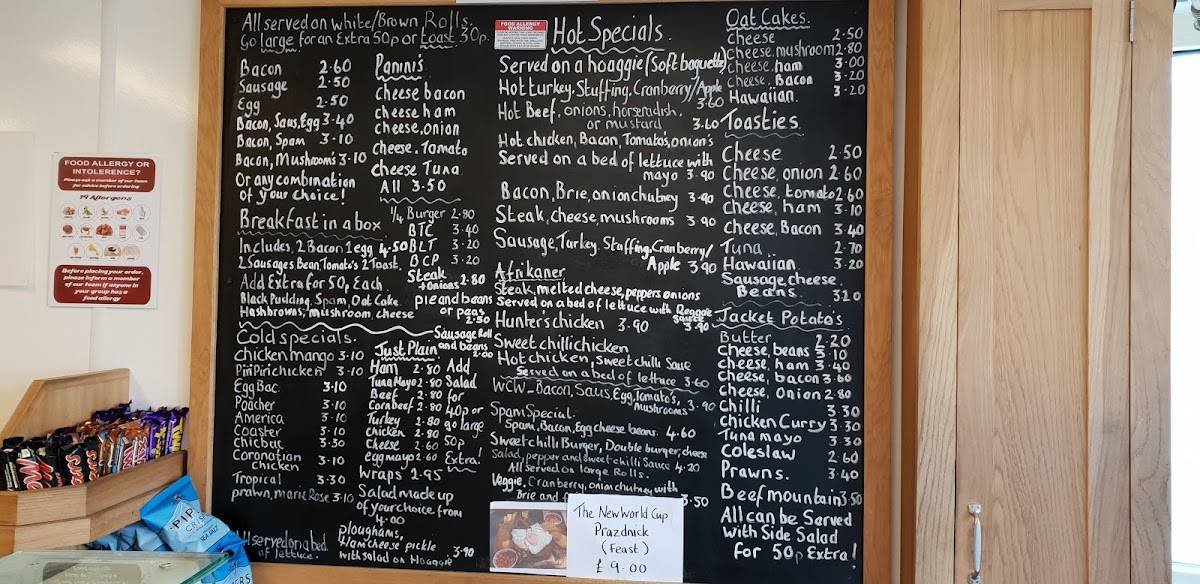 All served on white/Brown Rolls.
Go large for an Extra 50p or toast 30p.
Bacon 2.60
Sausage 2.50
Egg 2.50
Bacon, Saus, Egg 3.40
Bacon, Spam 3.10
Bacon, Mushrooms 3.10
Or any combination
of your choice!
Breakfast in a box
Includes, 2 Bacon 1 egg 4.50
2 Sausages, Bean, Tomato's 2 Toast.
Add Extra for 50p Each.
Black Pudding, Spam, Oat Cake.
Hashbrowns, mushroom, cheese
Panini's
Cheese bacon
cheese ham
cheese, onion
cheese, Tomato
cheese Tuna
All 3.50
1/4 Burger 2.80
BTC 3.40
BLT 3.20
BCP 3.20
Steak
+ onions 2.80
pie and beans
or peas
2.50
Sausage Roll
and beans
2.00
Cold specials.
Chicken mango 3.10
Piri Piri chicken 3.10
Egg Bac. 3.10
Poacher 3.10
America 3.10
Coaster 3.10
Chicbac 3.30
Coronation
chicken 3.10
Tropical 3.30
prawn, marie Rose 3.10
All served on a bed
of lettuce.
Just Plain
Ham 2.80
Tuna Mayo 2.80
Beef 2.80
Cornbeef 2.80
Turkey 2.80
Chicken 2.80
Cheese 2.60
Egg mayo 2.60
Add
Salad
for
40p or
go large
50p
Extra!
Wraps 2.95
Salad made up
of your choice from
4.00
ploughams,
Ham cheese pickle
with salad on Hoagie 3.90
FOOD ALLERGY
WARNING
Hot Specials.
Served on a hoaggie (Soft baguette)
Hot turkey, Stuffing, Cranberry/Apple
3.60
Hot Beef, onions, horseradish.
or mustard 3.60
Hot chicken, Bacon, Tomato's, onion's
Served on a bed of lettuce with
mayo 3.90
Bacon, Brie, onion chutney 3.90
Steak, cheese, mushrooms 3.90
Sausage, Turkey, Staffing, Cranberry/
Apple 3.90
Afrikaner
Steak, melted cheese, peppers onions
Served on a bed of lettuce with Reggae
Sauce 3.90
Hunter's chicken 3.90
Sweet chilli chicken
Hot chicken, Sweet chilli Saue
Served on a bed of lettuce 3.60
WCW - Bacon, Saus, Egg, Tomato's,
Mushrooms 3.90
Spam Special.
Spam, Bacon, Egg cheese beans. 4.60
Sweet chilli Burger, Double burger, cheese
Salad, pepper and sweet chilli Sauce 4.20
All Served on large Rolls.
Veggie, Cranberry, onion chutney with
Brie and 3.50
The New World Cup
Prazdnick
(Feast)
£ 9.00
Oat Cakes.
Cheese 2.50
cheese, mushroom 2.80
cheese, ham 3.00
cheese, Bacon 3.20
Hawaiian. 3.20
Toasties
Cheese 2.50
Cheese, onion 2.60
Cheese, tomato 2.60
Cheese, ham 3.10
Cheese, Bacon 3.40
Tuna 2.70
Hawaiian 3.20
Sausage, cheese,
Beans. 3.20
Jacket Potato's.
Butter 2.20
Cheese, beans 3.10
cheese, ham 3.40
cheese, bacon 3.60
Cheese, Onion 2.80
Chilli 3.30
Chicken Curry 3.30
Tuna mayo 3.30
Coleslaw 2.60
Prawns. 3.40
Beef mountain 3.50
All can be Served
with Side Salad
for 50p Extra!
FOOD ALLERGY OR
INTOLERENCE?
Please ask a member of our team
for advice before ordering
14 Allergens
Before placing your order,
please inform a member
of our team if anyone in
your group has a
food allergy
PIPERS
CRISPS
SEA SALT